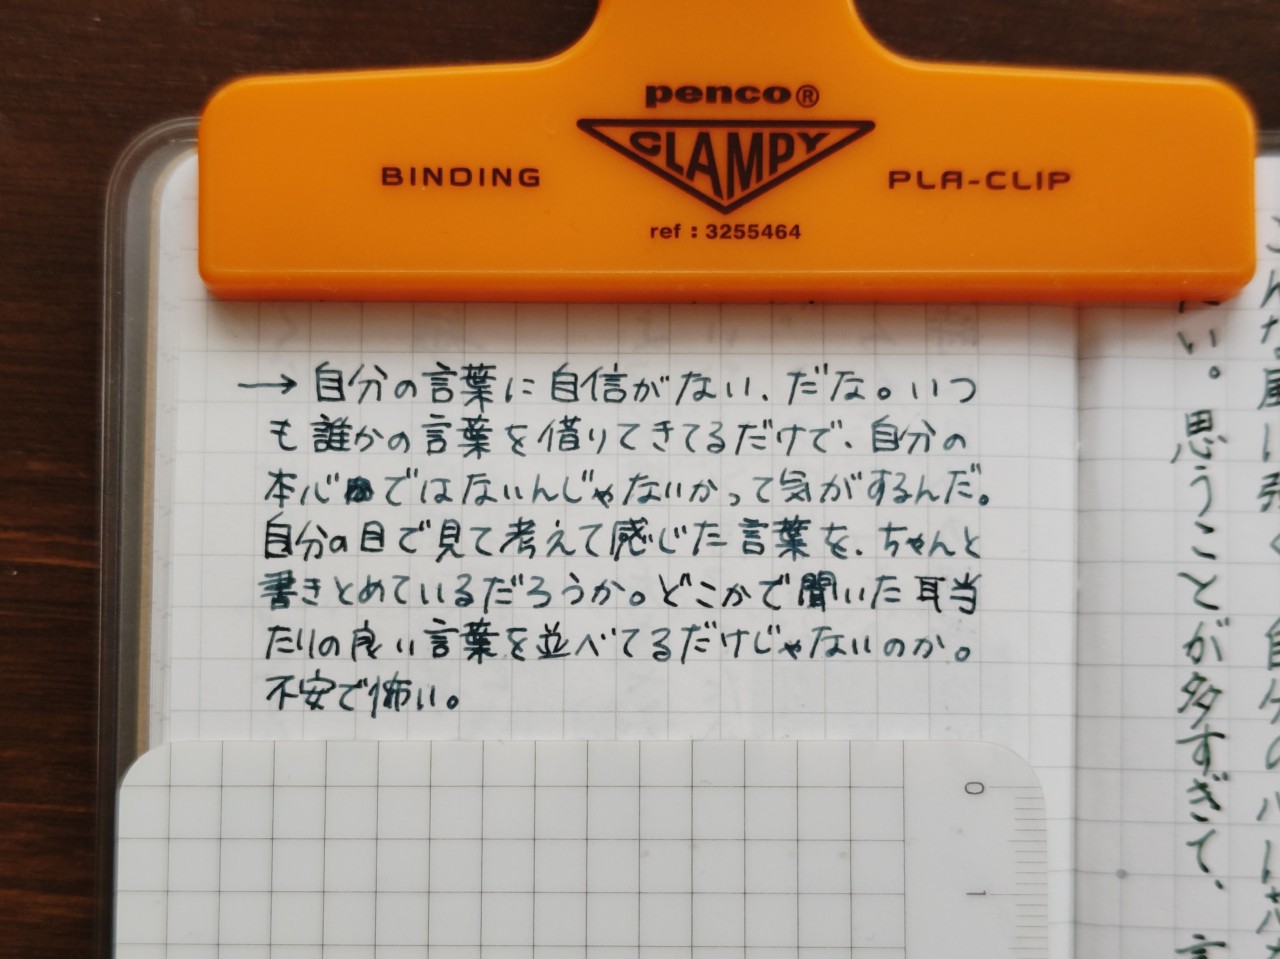 penco®
CLAMPY
BINDING
PLA-CLIP
ref : 3255464
→ 自分の言葉に自信がない、だな。いつ
も誰かの言葉を借りてきてるだけで、自分の
本心ではないんじゃないかって気がするんだ。
自分の目で見て考えて感じた言葉を、ちゃんと
書きとめているだろうか。どこかで聞いた耳当
たりの良い言葉を並べてるだけじゃないのか。
不安で怖い。
0
1
い。思うことが多すぎて、